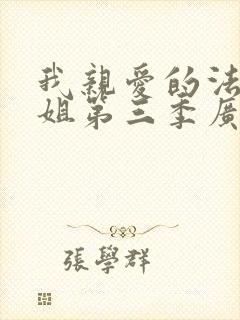 我親愛的法
姐第三季廣
張學群